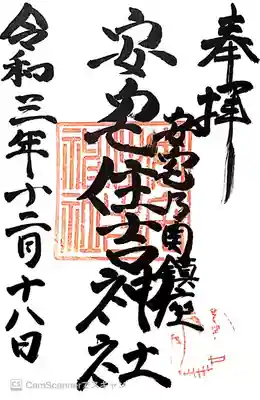 奉拝
安芸乃国鎮座
安芸住吉神社
令和三年十二月十八日
CS CamScannerでスキャン